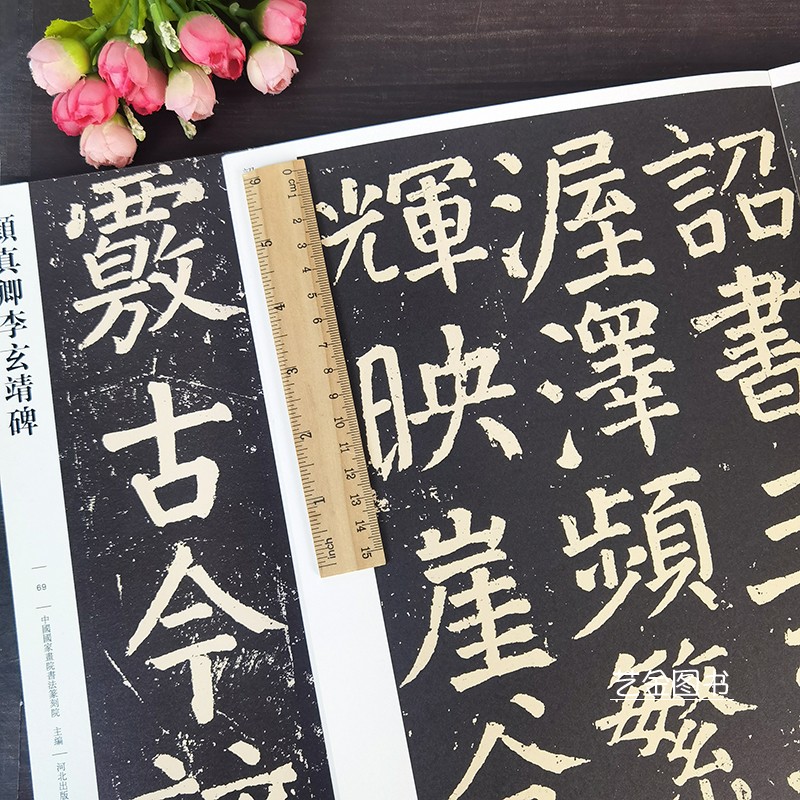 詔書
渥澤頻繁
輝映崖谷
覈古今
顏真卿李玄靖碑
69
中國國家畫院書法篆刻院 主編
河北出版
艺金图书
0 cm 1 2 3 4 5 6 7 8 9 10 11 12 13 14 15
6 5 4 3 2 1 inch